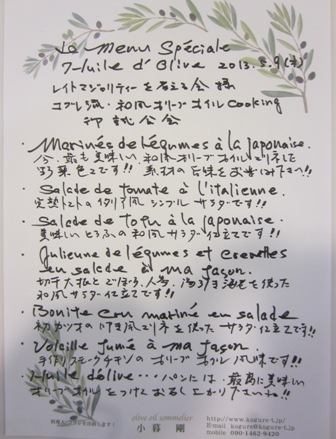 La Menu Spéciale
l'Huile d'Olive 2013.5.9(木)
レイトマジョリティーを考える会 様
コグレ流・和風オリーブオイルcooking
御試食会
・Marinés de légumes à la japonaise.
今、最も美味しい和風オリーブオイルマリネした
彩菜色々です!! 素材の旨味をお楽しみ下さい!!
・Salade de tomate à l'italienne.
完熟トマトのイタリア風シンプルサラダです!!
・Salade de Tofu à la japonaise.
美味しいとうふの和風サラダ仕立てです!!
・Julienne de légumes et crevettes
en salade à ma façon.
切干大根とごぼう、人参、海老を使った
和風サラダー仕立てです!!
・Bonite cru mariné en salade
初ガツオのマリネを使ったサラダ仕立てです!!
・Volaille fumé à ma façon.
手作りスモークチキンのオリーブオイル風味です!!
・Huile d'olive... パンには、最高に美味しい
オリーブオイルをつけてお召し上がり下さいね!!
olive oil sommelier
小暮 剛
http://www.kogure-t.jp/
E-mail k@kogure-t.jp
mobile 090-1462-9420